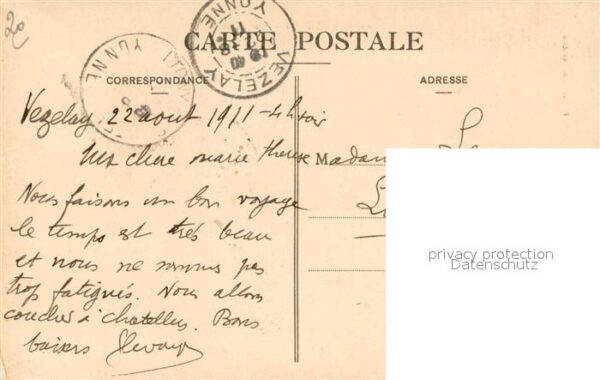 20
CARTE POSTALE
VEZELAY
YONNE
YONNE
CORRESPONDANCE
ADRESSE
Vezelay. 22 aout 1911 - 4h soir
Ma chere marie therese
Madam
Nous faisons un bon voyage
le temps est très beau
et nous ne sommes pas
trop fatigués. Nous allons
coucher à Chatellux. Bons
baisers
privacy protection
Datenschutz